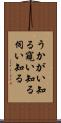 うかがい知
る窺い知る
伺い知る